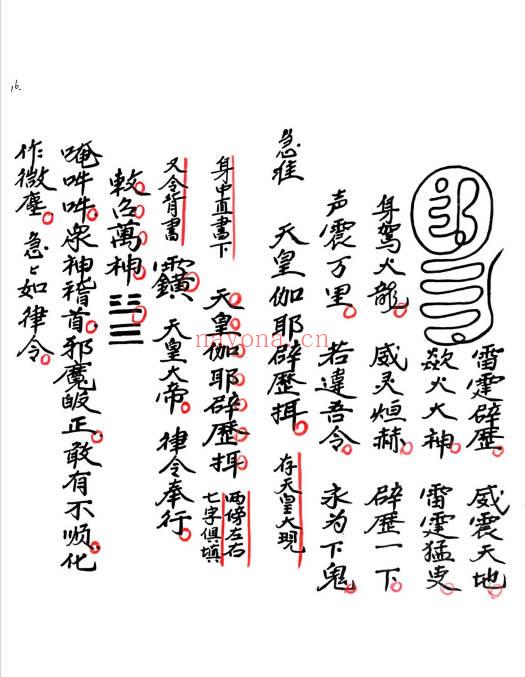 16.
雷霆辟歷 威震天地
歘火大神 雷霆猛吏
身駕火龍 威灵烜赫 辟歷一下
声震万里 若違吾令 永为下鬼
急推 天皇伽耶辟歷揖 存天皇大現
身中直書下 天皇伽耶辟歷揖 兩傍左右七字俱填
又令背書 天皇大帝 律令奉行
敕召萬神
唵吽吽 衆神稽首 邪魔皈正 敢有不顺化
作微塵 急〻如律令
nayona.cn